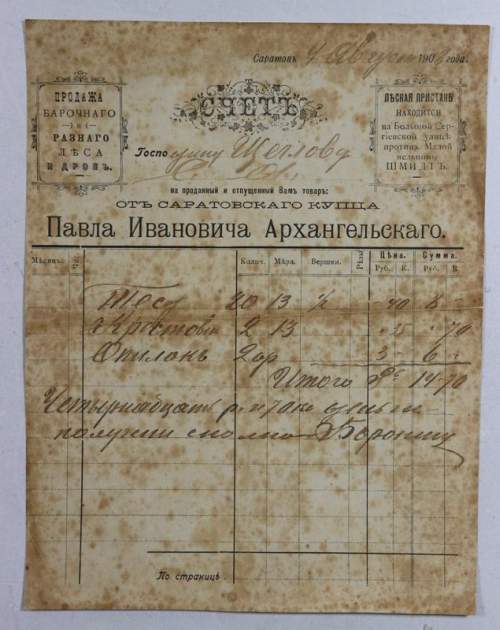 Саратовъ 4 Август 190 года.
ПРОДАЖА
БАРОЧНАГО
—) и (—
РАЗНАГО
ЛѢСА
И ДРОВЪ.
СЧЕТЪ
ЛѢСНАЯ ПРИСТАНЬ
НАХОДИТСЯ
на Большой Сер-
гіевской улицѣ
противъ Малой
мельницы
ШМИДТЪ.
Господину Щеглову
на проданный и отпущенный Вамъ товаръ:
ОТЪ САРАТОВСКАГО КУПЦА
Павла Ивановича Архангельскаго.
Мѣсяцъ. Колич. Мѣра. Вершки. Рѣзы Цѣна. Сумма.
Руб. К. Руб. К.
Тесу 20 13 ½ " 40 8 "
2 13 " 35 " 70
Опилокъ 2 ор 3 " 6 "
Итого Рс 14 70
Четырнадцать р. и 70 к деньги
получилъ сполна
По страницѣ